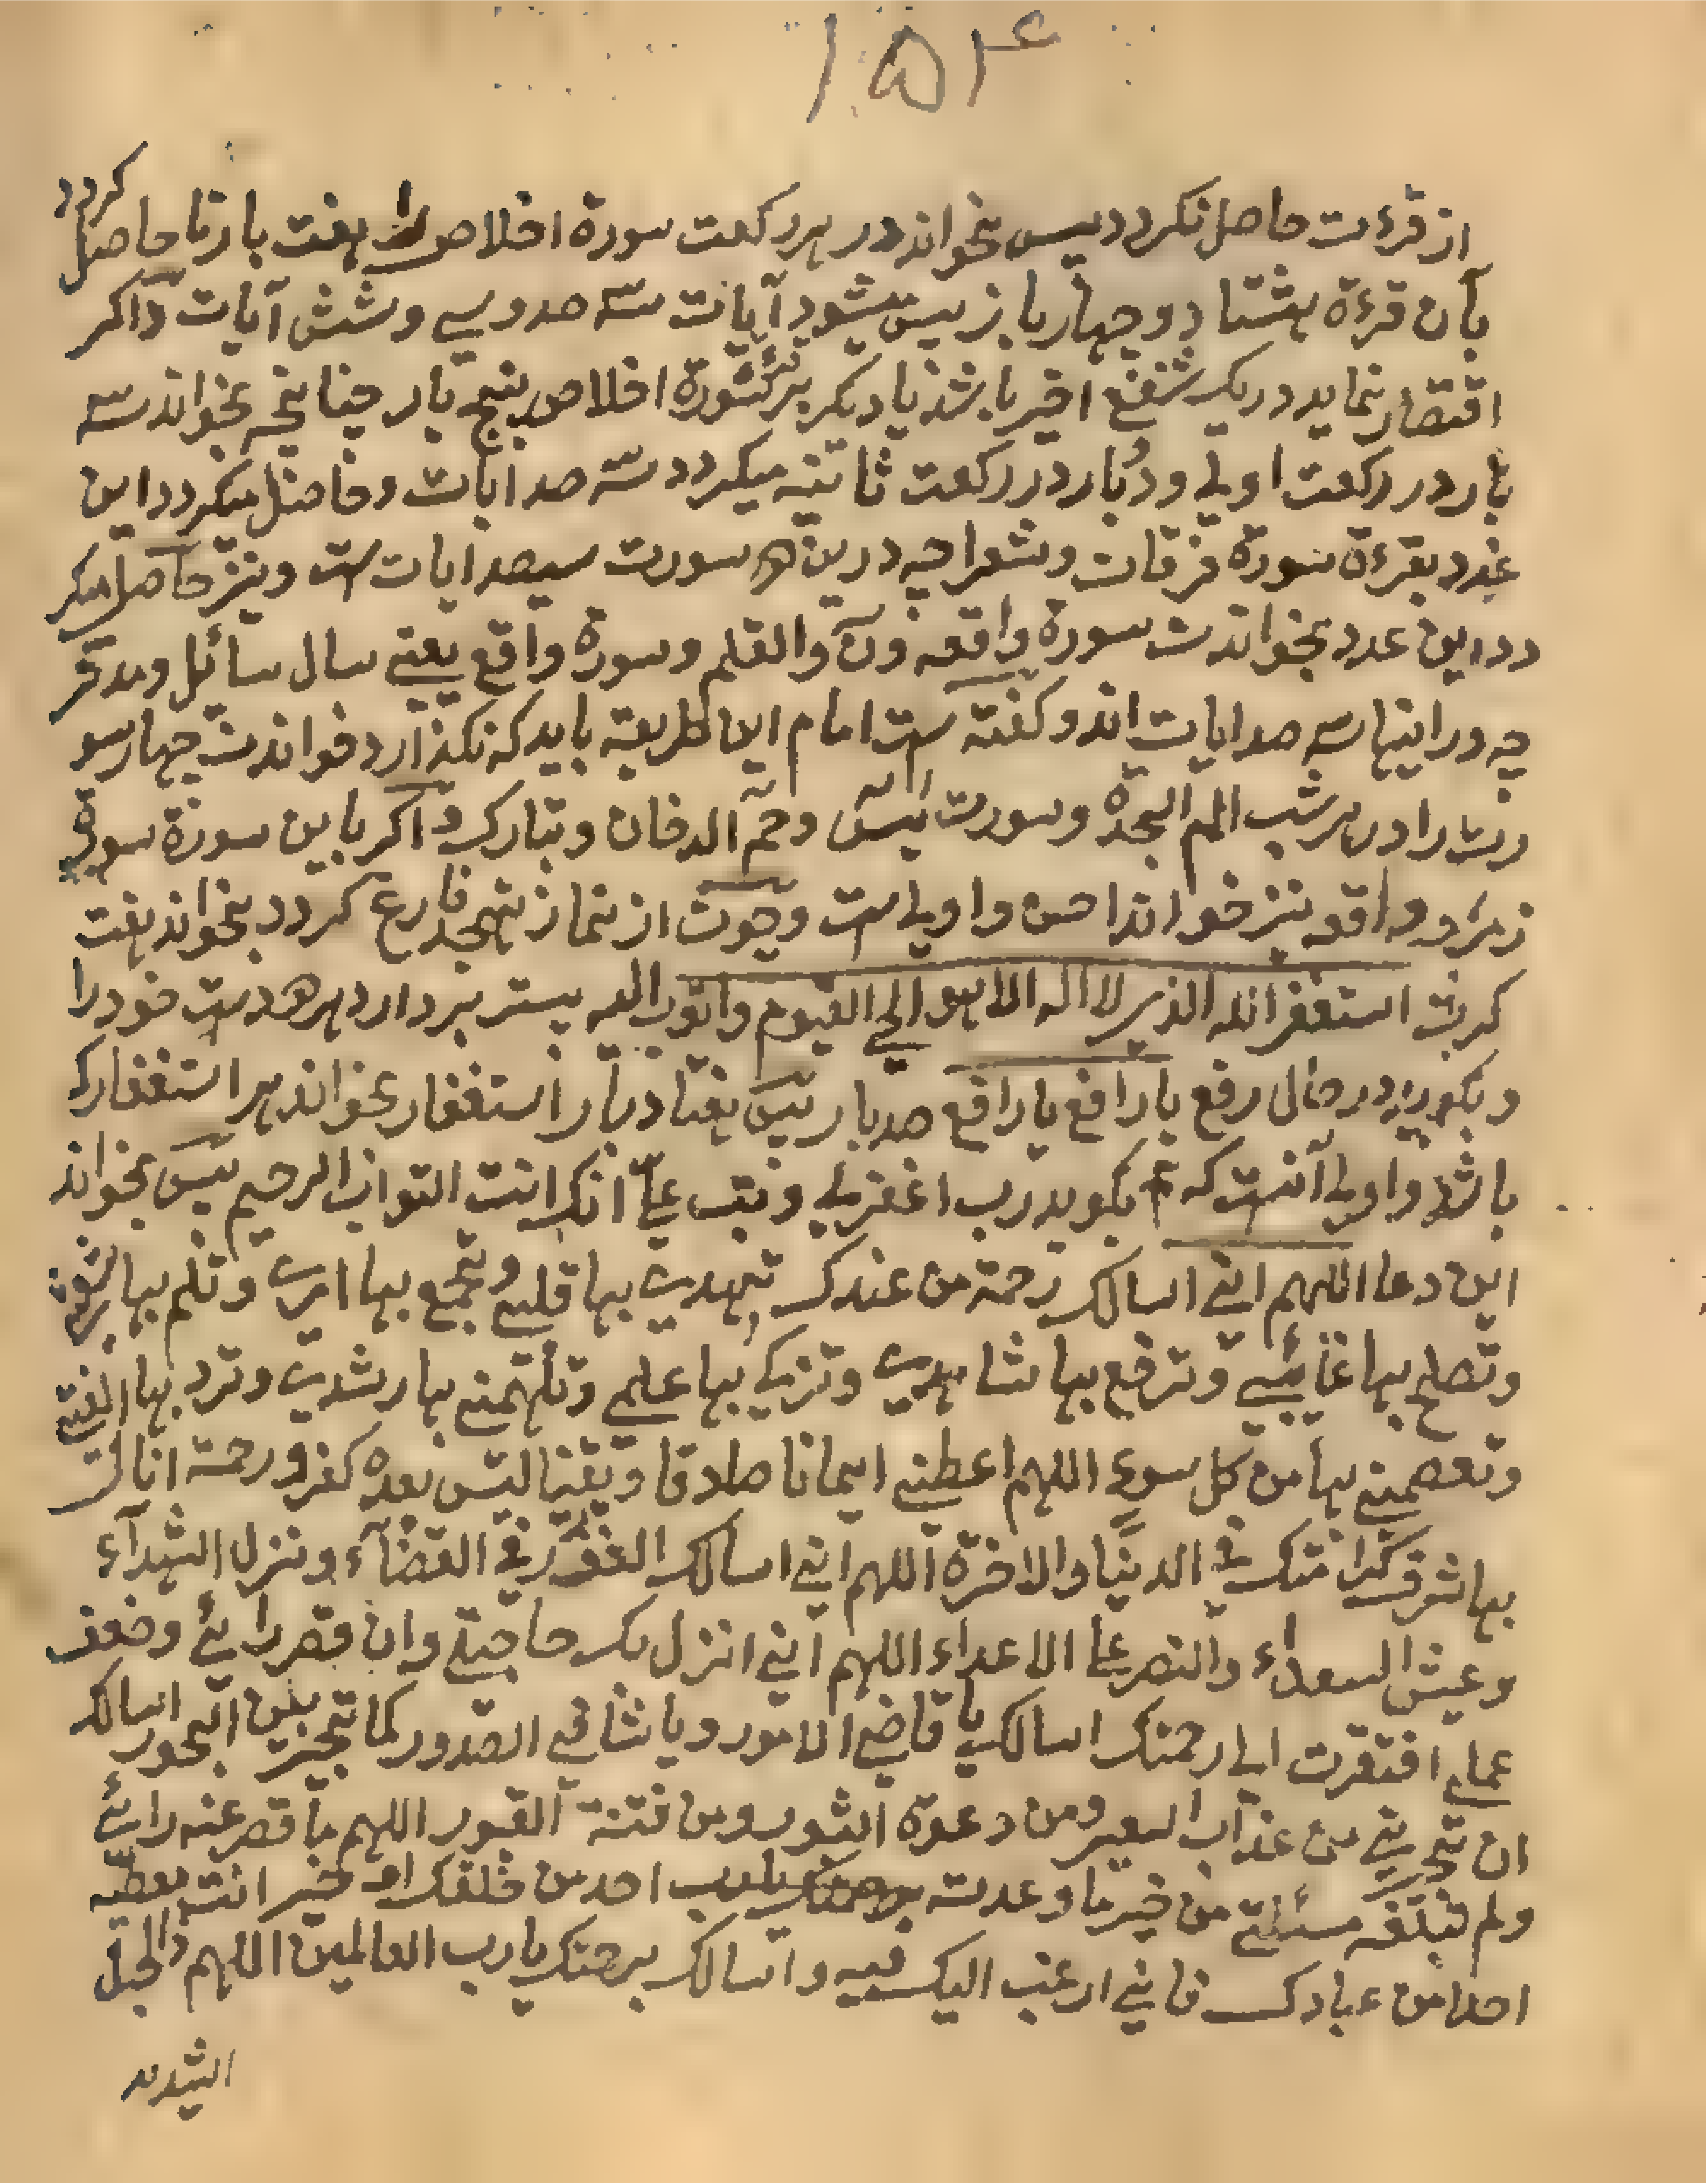 ۱۵۴
از قرءت حاصل نکردد پس بخواند در هر رکعت سورة اخلاص را هفت بار تا حاصل کردد
بآن قرءة هشتاد و چهار بار پس میشود آیات سه صد و سی و شش آیات و اکر
اقتصار نماید در یک شفع اخیر باشد یا دیکر سورة اخلاص پنج بار چنانچه بخواند سه
بار در رکعت اولی و دو بار در رکعت ثانیه میکردد سه صد ایات و حاصل میکردد این
عدد بقرءة سورة فرقان و شعرا چه درین هر سورت سیصد ایات است و نیز حاصل میکر
دد این عدد بخواندن سورة واقعه و ن والقلم و سورة واقع یعنی سال سائل و مدثر
چه در اینها سه صد ایات اند و کفته است امام این طریقه باید که نکذارد خواندن چهار سو
رت را در هر شب الم السجدة و سورت یس و حم الدخان و تبارک و اکر با این سورة سورة
زمر و واقعه نیز خواند احسن و اولی است و چون از نماز تهجد فارغ کردد بخواند هفت
کرت استغفر الله الذی لا اله الا هو الحی القیوم و اتوب الیه پستر بردارد هر دو دست خود را
و بکوید در حال رفع یا رافع یا رافع صد بار پس هفتاد بار استغفار بخواند هر استغفار که
باشد و اولی آنست که بکوید رب اغفر لی و تب علی انک انت التواب الرحیم پس بخواند
این دعا اللهم انی اسالک رحمة من عندک تهدی بها قلبی و تجمع بها امری و تلم بها شعثی
و تصلح بها غائبی و ترفع بها شاهدی و تزکی بها عملی و تلهمنی بها رشدی و ترد بها الفتی
و تعصمنی بها من کل سوء اللهم اعطنی ایمانا صادقا و یقینا لیس بعده کفر و رحمة انال
بها شرف کرامتک فی الدنیا و الاخرة اللهم انی اسالک الفوز فی القضآء و نزل الشهدآء
و عیش السعداء و النصر علی الاعداء اللهم انی انزل بک حاجتی و ان قصر رائی و ضعف
عملی افتقرت الی رحمتک اسالک یا قاضی الامور و یا شافی الصدور کما تجیر بین البحور اسالک
ان تجیرنی من عذاب السعیر و من دعوة الثبور و من فتنة القبور اللهم ما قصر عنه رائی
و لم تبلغه مسئلتی من خیر ما وعدته احد من خلقک او خیر انت معطیه
احدا من عبادک فانی ارغب الیک فیه و اسالک برحمتک یا رب العالمین اللهم ذا الحبل
الشدید